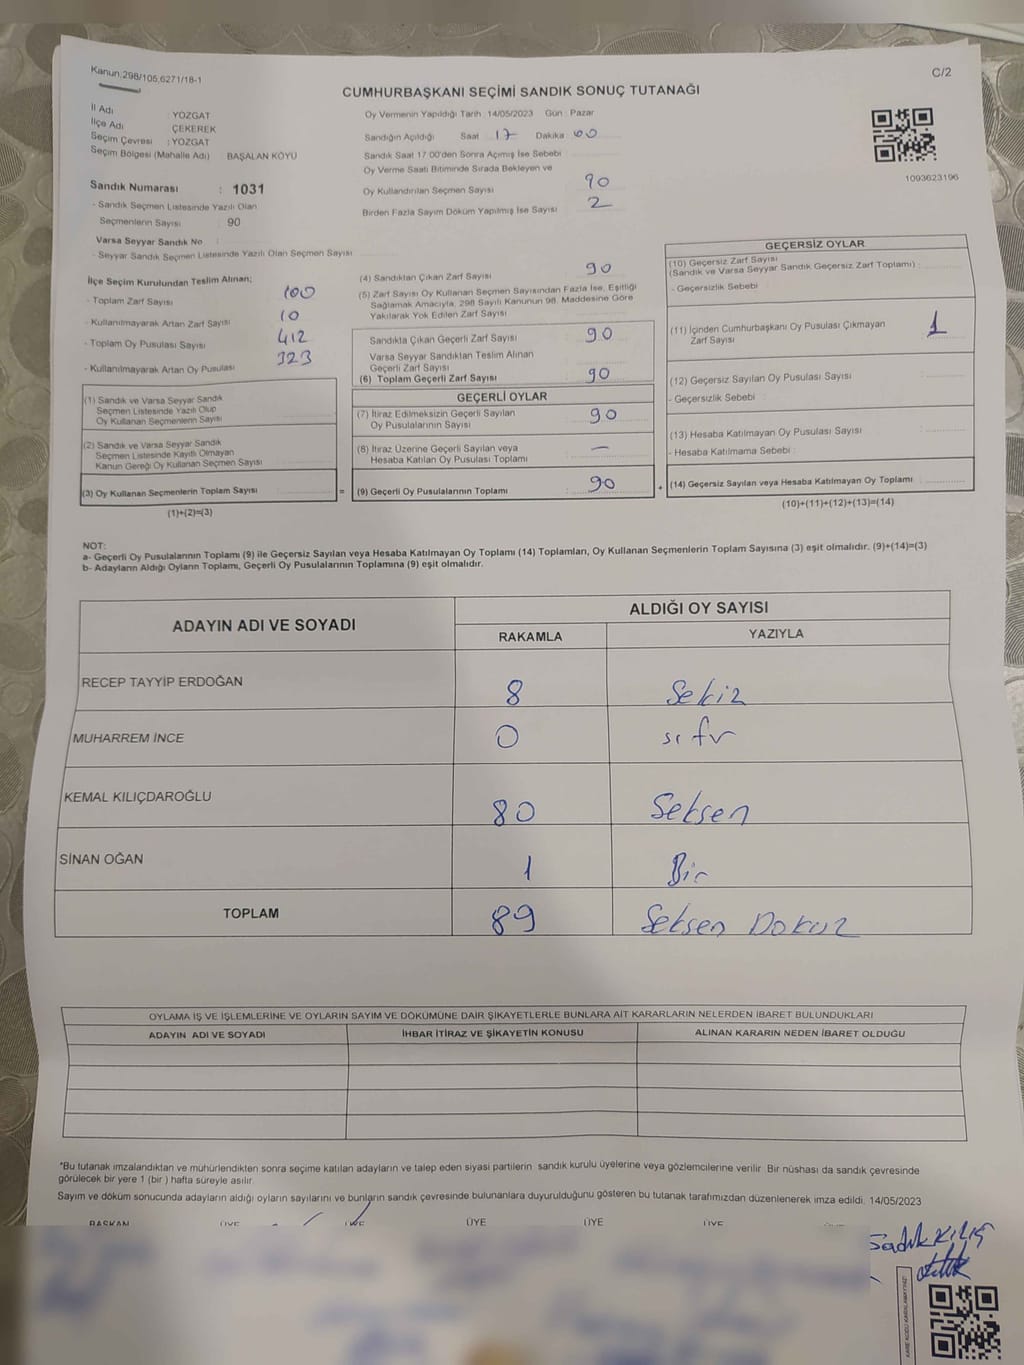 Kanun:298/105,6271/18-1
C/2
CUMHURBAŞKANI SEÇİMİ SANDIK SONUÇ TUTANAĞI
İl Adı : YOZGAT
İlçe Adı : ÇEKEREK
Seçim Çevresi : YOZGAT
Seçim Bölgesi (Mahalle Adı) : BAŞALAN KÖYÜ
Sandık Numarası : 1031
- Sandık Seçmen Listesinde Yazılı Olan
Seçmenlerin Sayısı : 90
Varsa Seyyar Sandık No :
- Seyyar Sandık Seçmen Listesinde Yazılı Olan Seçmen Sayısı
Oy Vermenin Yapıldığı Tarih :14/05/2023 Gün : Pazar
Sandığın Açıldığı Saat 17 Dakika 00
Sandık Saat 17:00'den Sonra Açımış İse Sebebi
Oy Verme Saati Bitiminde Sırada Bekleyen ve
Oy Kullandırılan Seçmen Sayısı 90
Birden Fazla Sayım Döküm Yapılmış İse Sayısı 2
1093623196
İlçe Seçim Kurulundan Teslim Alınan;
- Toplam Zarf Sayısı 100
- Kullanılmayarak Artan Zarf Sayısı 10
- Toplam Oy Pusulası Sayısı 412
- Kullanılmayarak Artan Oy Pusulası 323
(1) Sandık ve Varsa Seyyar Sandık
Seçmen Listesinde Yazılı Olup
Oy Kullanan Seçmenlerin Sayısı
(2) Sandık ve Varsa Seyyar Sandık
Seçmen Listesinde Kayıtlı Olmayan
Kanun Gereği Oy Kullanan Seçmen Sayısı
(3) Oy Kullanan Seçmenlerin Toplam Sayısı
(1)+(2)=(3)
(4) Sandıktan Çıkan Zarf Sayısı 90
(5) Zarf Sayısı Oy Kullanan Seçmen Sayısından Fazla İse, Eşitliği
Sağlamak Amacıyla, 298 Sayılı Kanunun 98. Maddesine Göre
Yakılarak Yok Edilen Zarf Sayısı
Sandıkta Çıkan Geçerli Zarf Sayısı 90
Varsa Seyyar Sandıktan Teslim Alınan
Geçerli Zarf Sayısı
(6) Toplam Geçerli Zarf Sayısı 90
GEÇERLİ OYLAR
(7) İtiraz Edilmeksizin Geçerli Sayılan
Oy Pusulalarının Sayısı 90
(8) İtiraz Üzerine Geçerli Sayılan veya
Hesaba Katılan Oy Pusulası Toplamı —
= (9) Geçerli Oy Pusulalarının Toplamı : 90
GEÇERSİZ OYLAR
(10) Geçersiz Zarf Sayısı
(Sandık ve Varsa Seyyar Sandık Geçersiz Zarf Toplamı) :
- Geçersizlik Sebebi
(11) İçinden Cumhurbaşkanı Oy Pusulası Çıkmayan
Zarf Sayısı 1
(12) Geçersiz Sayılan Oy Pusulası Sayısı
- Geçersizlik Sebebi
(13) Hesaba Katılmayan Oy Pusulası Sayısı
- Hesaba Katılmama Sebebi :
+ (14) Geçersiz Sayılan veya Hesaba Katılmayan Oy Toplamı
(10)+(11)+(12)+(13)=(14)
NOT:
a- Geçerli Oy Pusulalarının Toplamı (9) ile Geçersiz Sayılan veya Hesaba Katılmayan Oy Toplamı (14) Toplamları, Oy Kullanan Seçmenlerin Toplam Sayısına (3) eşit olmalıdır. (9)+(14)=(3)
b- Adayların Aldığı Oyların Toplamı, Geçerli Oy Pusulalarının Toplamına (9) eşit olmalıdır.
ADAYIN ADI VE SOYADI
ALDIĞI OY SAYISI
RAKAMLA YAZIYLA
RECEP TAYYİP ERDOĞAN 8 Sekiz
MUHARREM İNCE 0 sıfır
KEMAL KILIÇDAROĞLU 80 Seksen
SİNAN OĞAN 1 Bir
TOPLAM 89 Seksen Dokuz
OYLAMA İŞ VE İŞLEMLERİNE VE OYLARIN SAYIM VE DÖKÜMÜNE DAİR ŞİKAYETLERLE BUNLARA AİT KARARLARIN NELERDEN İBARET BULUNDUKLARI
ADAYIN ADI VE SOYADI İHBAR İTİRAZ VE ŞİKAYETİN KONUSU ALINAN KARARIN NEDEN İBARET OLDUĞU
*Bu tutanak imzalandıktan ve mühürlendikten sonra seçime katılan adayların ve talep eden siyasi partilerin sandık kurulu üyelerine veya gözlemcilerine verilir. Bir nüshası da sandık çevresinde
görülecek bir yere 1 (bir ) hafta süreyle asılır.
Sayım ve döküm sonucunda adayların aldığı oyların sayılarını ve bunların sandık çevresinde bulunanlara duyurulduğunu gösteren bu tutanak tarafımızdan düzenlenerek imza edildi. 14/05/2023
BAŞKAN ÜYE ÜYE ÜYE ÜYE ÜYE ÜYE
Sadık KILIÇ